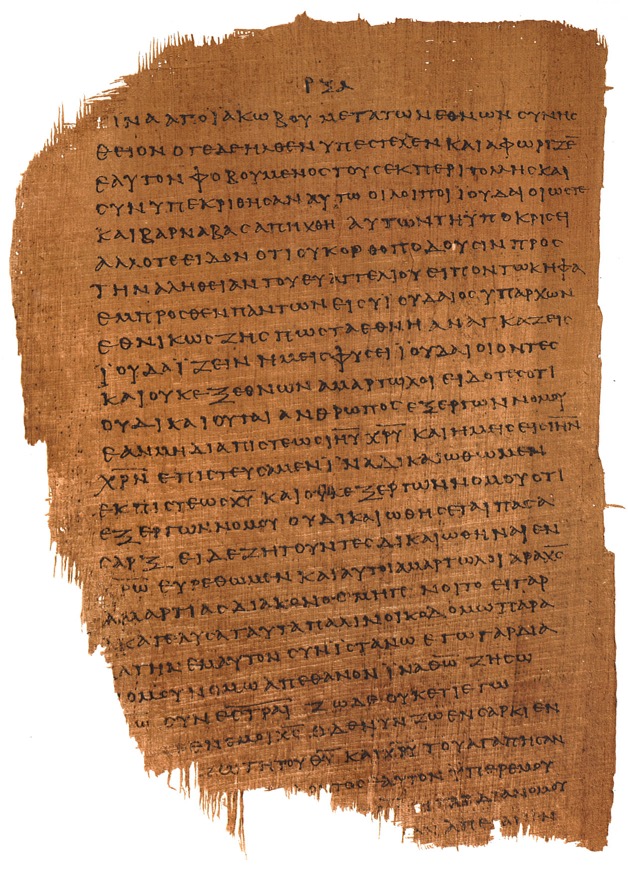 ΡΞΑ
ΤΙΝΑ ΑΠΟ ΪΑΚΩΒΟΥ ΜΕΤΑ ΤΩΝ ΕΘΝΩΝ ΣΥΝΗΣ
ΘΕΙΟΝ ΟΤΕ ΔΕ ΗΛΘΕΝ ΥΠΕΣΤΕΛΛΕΝ ΚΑΙ ΑΦΩΡΙΖΕ̅
ΕΑΥΤΟΝ ΦΟΒΟΥΜΕΝΟΣ ΤΟΥΣ ΕΚ ΠΕΡΙΤΟΜΗΣ ΚΑΙ
ΣΥΝΥΠΕΚΡΙΘΗΣΑΝ ΑΥΤΩ ΟΙ ΛΟΙΠΟΙ ΪΟΥΔΑΙΟΙ ΩΣΤΕ
ΚΑΙ ΒΑΡΝΑΒΑΣ ΣΥΝΑΠΗΧΘΗ ΑΥΤΩΝ ΤΗ ΫΠΟΚΡΙΣΕΙ
ΑΛΛ ΟΤΕ ΕΙΔΟΝ ΟΤΙ ΟΥΚ ΟΡΘΟΠΟΔΟΥΣΙΝ ΠΡΟΣ
ΤΗΝ ΑΛΗΘΕΙΑΝ ΤΟΥ ΕΥΑΓΓΕΛΙΟΥ ΕΙΠΟΝ ΤΩ ΚΗΦΑ
ΕΜΠΡΟΣΘΕΝ ΠΑΝΤΩΝ ΕΙ ΣΥ ΪΟΥΔΑΙΟΣ ΫΠΑΡΧΩΝ
ΕΘΝΙΚΩΣ ΖΗΣ ΠΩΣ ΤΑ ΕΘΝΗ ΑΝΑΓΚΑΖΕΙΣ
ΪΟΥΔΑΪΖΕΙΝ ΗΜΕΙΣ ΦΥΣΕΙ ΪΟΥΔΑΙΟΙ ΟΝΤΕΣ
ΚΑΙ ΟΥΚ ΕΞ ΕΘΝΩΝ ΑΜΑΡΤΩΛΟΙ ΕΙΔΟΤΕΣ ΟΤΙ
ΟΥ ΔΙΚΑΙΟΥΤΑΙ ΑΝΘΡΩΠΟΣ ΕΞ ΕΡΓΩΝ ΝΟΜΟΥ
ΕΑΝ ΜΗ ΔΙΑ ΠΙΣΤΕΩΣ Ι̅Η̅Υ̅ Χ̅Ρ̅Υ̅ ΚΑΙ ΗΜΕΙΣ ΕΙΣ Ι̅Η̅Ν̅
Χ̅Ρ̅Ν̅ ΕΠΙΣΤΕΥΣΑΜΕΝ ΪΝΑ ΔΙΚΑΙΩΘΩΜΕΝ
ΕΚ ΠΙΣΤΕΩΣ Χ̅Υ̅ ΚΑΙ ΟΥΚ ΕΞ ΕΡΓΩΝ ΝΟΜΟΥ ΟΤΙ
ΕΞ ΕΡΓΩΝ ΝΟΜΟΥ ΟΥ ΔΙΚΑΙΩΘΗΣΕΤΑΙ ΠΑΣΑ
ΣΑΡΞ ΕΙ ΔΕ ΖΗΤΟΥΝΤΕΣ ΔΙΚΑΙΩΘΗΝΑΙ ΕΝ
Χ̅Ρ̅Ω̅ ΕΥΡΕΘΩΜΕΝ ΚΑΙ ΑΥΤΟΙ ΑΜΑΡΤΩΛΟΙ ΑΡΑ Χ̅Σ̅
ΑΜΑΡΤΙΑΣ ΔΙΑΚΟΝΟΣ ΜΗ ΓΕΝΟΙΤΟ ΕΙ ΓΑΡ
Α ΚΑΤΕΛΥΣΑ ΤΑΥΤΑ ΠΑΛΙΝ ΟΙΚΟΔΟΜΩ ΠΑΡΑ
ΒΑΤΗΝ ΕΜΑΥΤΟΝ ΣΥΝΙΣΤΑΝΩ ΕΓΩ ΓΑΡ ΔΙΑ
ΝΟΜΟΥ ΝΟΜΩ ΑΠΕΘΑΝΟΝ ΪΝΑ Θ̅Ω̅ ΖΗΣΩ
Ω ΣΥΝΕΣΤΡΑΙ ΖΩ ΔΕ ΟΥΚΕΤΙ ΕΓΩ
ΕΝ ΕΜΟΙ Χ̅Σ̅ Ο ΔΕ ΝΥΝ ΖΩ ΕΝ ΣΑΡΚΙ ΕΝ
ΖΩ ΤΗ ΤΟΥ Θ̅Υ̅ ΚΑΙ Χ̅Ρ̅Υ̅ ΤΟΥ ΑΓΑΠΗΣΑΝ
ΟΝΤΟΣ ΕΑΥΤΟΝ ΫΠΕΡ ΕΜΟΥ
ΕΙ ΓΑΡ ΔΙΑ ΝΟΜΟΥ
ΑΠΕΘΑΝΕΝ